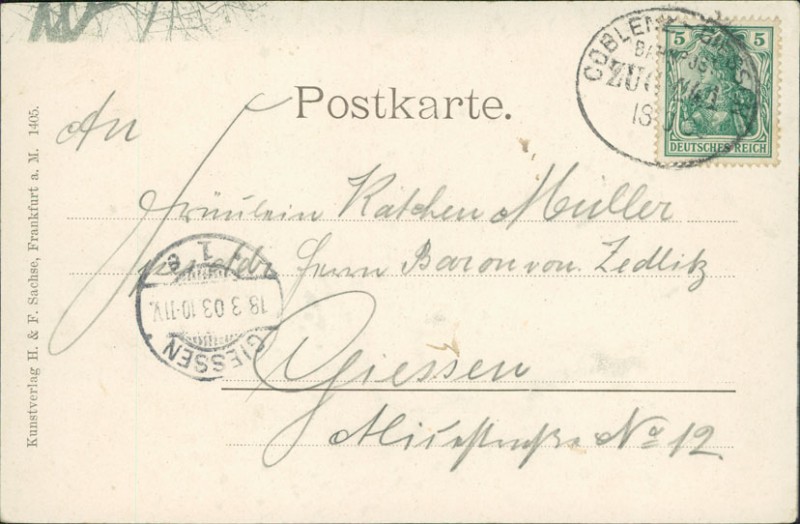 Postkarte.
An
Fräulein Kätchen Müller
Herrn Baron von Zedlitz
Giessen
No 12.
Kunstverlag H. & F. Sachse, Frankfurt a. M. 1405.
5 5
DEUTSCHES REICH
COBLENZ
BAHNPOST
ZUG
GIESSEN
18 3 03 10-11V.
1